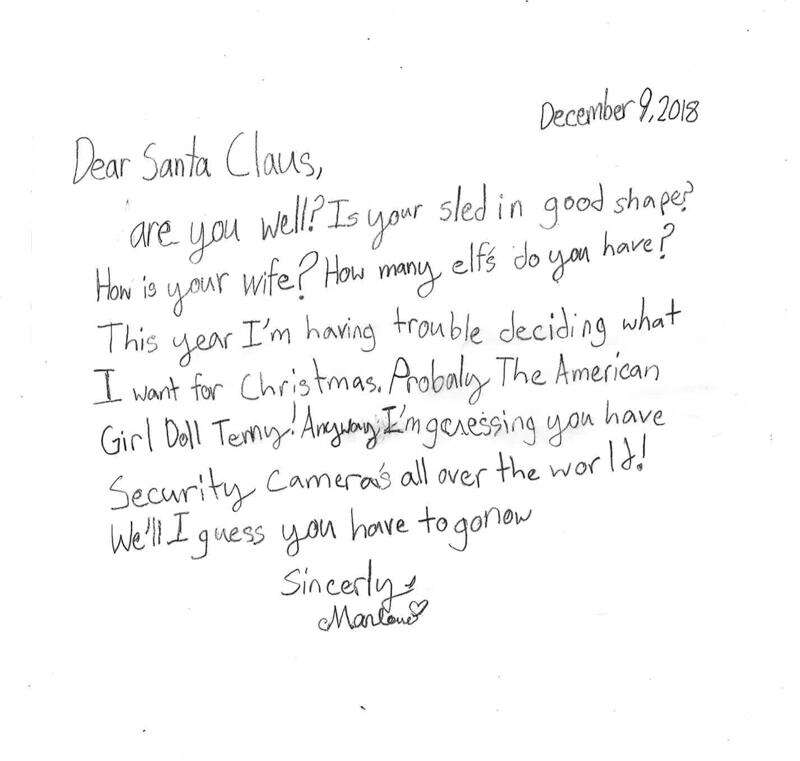 December 9, 2018
Dear Santa Claus,
are you well? Is your sled in good shape?
How is your wife? How many elf's do you have?
This year I'm having trouble deciding what
I want for Christmas. Probaly The American
Girl Doll Tenny! Anyway I'm guessing you have
Security Camera's all over the world!
We'll I guess you have to go now
Sincerly,